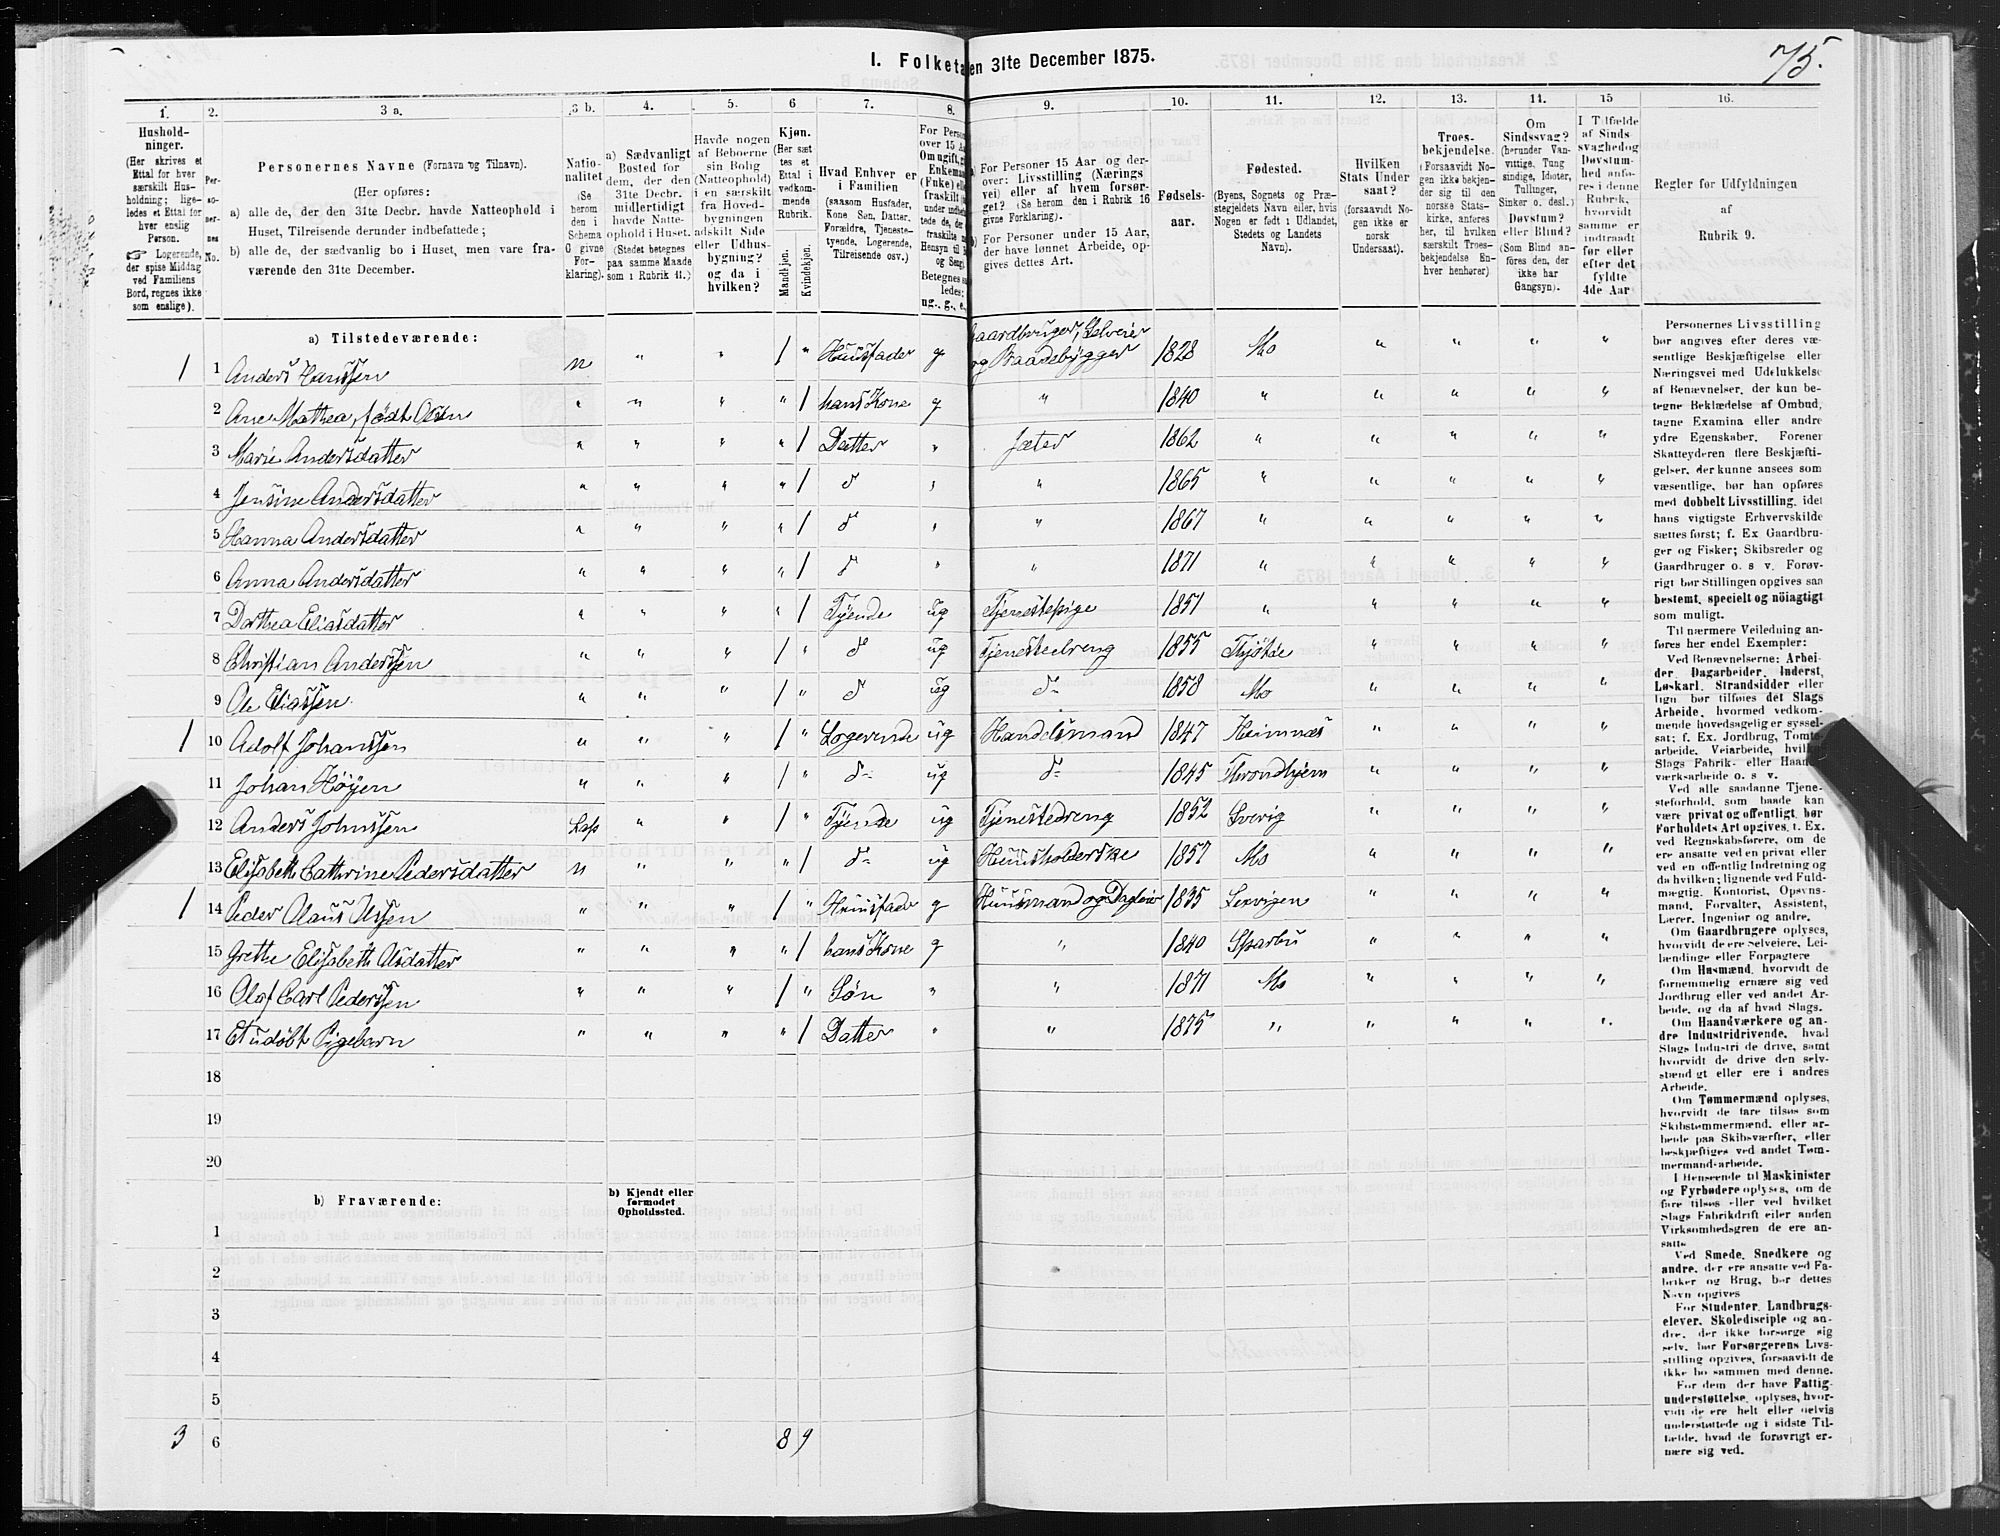 I. Folketa en 31te December 1875.
75.
1.
Hushold-
ninger.
(Her skrives et
Ettal for hver
særskilt Hus-
holdning; lige-
ledes et Ettal for
hver enslig
Person.
☞ Logerende,
der spise Middag
ved Familiens
Bord, regnes ikke
som enslige).
2.
Per-
so-
ner-
nes
No.
3 a.
Personernes Navne (Fornavn og Tilnavn).
(Her opføres:
a) alle de, der den 31te Decbr. havde Natteophold i
Huset, Tilreisende derunder indbefattede;
b) alle de, der sædvanlig bo i Huset, men vare fra-
værende den 31te December.
3 b.
Natio-
nalitet
(Se
herom
den i
Schema
C givne
For-
klaring).
4.
a) Sædvanligt
Bosted for
dem, der den
31te Decbr.
midlertidigt
havde Natte-
ophold i Huset.
(Stedet betegnes
paa samme Maade
som i Rubrik 11.)
5.
Havde nogen
af Beboerne
sin Bolig
(Natteophold)
i en særskilt
fra Hoved-
bygningen
adskilt Side
eller Udhus-
bygning?
og da i
hvilken?
6
Kjøn.
(Her sæt-
tes et
Ettal i
vedkom-
mende
Rubrik.
Mandkjøn.
Kvindekjøn.
7.
Hvad Enhver er
i Familien
(saasom Husfader,
Kone Søn, Datter,
Forældre, Tjeneste-
tyende, Logerende,
Tilreisende osv.)
8.
For Perso
over 15 Aa
Om ugift, g
Enkema
(Fnke) el
fraskilt
under indbef
tede de, der
fraskilte
Hensyn til B
og Seng
Betegnes s
ledes:
ug., g., e.
9.
a) For Personer 15 Aar og der-
over: Livsstilling (Nærings
vei) eller af hvem forsør-
get? (Se herom den i Rubrik 16
givne Forklaring).
b) For Personer under 15 Aar,
der have lønnet Arbeide, op-
gives dettes Art.
10.
Fødsels-
aar.
11.
Fødested.
(Byens, Sognets og Præ-
stegjeldets Navn eller, hvis
Nogen er født i Udlandet,
Stedets og Landets
Navn).
12.
Hvilken
Stats Under
saat?
(forsaavidt No-
gen ikke er
norsk
Undersaat).
13.
Troes-
bekjendelse.
(Forsaavidt No-
gen ikke bekjen-
der sig til den
norske Stats-
kirke, anføres
her, til hvilken
særskilt Troes-
bekjendelse En-
hver henhører)
14.
Om
Sindssvag?
(herunder Van-
vittige, Tung
sindige, Idioter,
Tullinger,
Sinker o. desl.)
Døvstum?
eller Blind?
(Som Blind an-
føres den, der
ikke har
Gangsyn).
15
I Tilfælde
af Sinds
svaghed og
Døvstum-
hed anfø-
res i denne
Rubrik,
hvorvidt
samme er
indtraadt
før eller
efter det
fyldte
4de Aar
16.
Regler for Udfyldningen
af
Rubrik 9.
a) Tilstedeværende:
1 1 Anders Hanssen n " " 1 " Huusfader g Gaardbruger, Selveier og Baadebygger 1828 Mo " " " "
2 Ane Mathea, født Olsen " " " " 1 hans Kone g " 1840 " " " " "
3 Marie Andersdatter " " " " 1 Datter " Jæter 1862 " " " " "
4 Jensine Andersdatter " " " " 1 d " " 1865 " " " " "
5 Hanna Andersdatter " " " " 1 d " " 1867 " " " " "
6 Anna Andersdatter " " " " 1 d " " 1871 " " " " "
7 Dorthea Eliasdatter " " " " 1 Tyende ug Tjenestepige 1851 " " " " "
8 Christian Anderssen " " " 1 " d ug Tjenestedreng 1855 Thjøtdø " " " "
9 Ole Eliassen " " " 1 " d ug d- 1858 Mo " " " "
1 10 Adolf Johanssen " " " 1 " Logerende ug Handelsmand 1847 Heimnæs " " " "
11 Johan Høyen " " " 1 " d- ug d- 1845 Throndhjem " " " "
12 Anders Johnssen Lap " " 1 " Tyende ug Tjenestedreng 1852 Sverig " " " "
13 Elisabeth Cathrine Pedersdatter n " " " 1 d- ug Huusholderske 1857 Mo " " " "
1 14 Peder Olaus Olssen " " " 1 " Huusfader g Huusmand og Dagleier 1835 Lexvigen " " " "
15 Grethe Elisabeth Olsdatter " " " " 1 hans Kone g " 1840 Sparbu " " " "
16 Olaf Carl Pederssen " " " 1 " Søn " " 1871 Mo " " " "
17 Et udøbt Pigebarn " " " " 1 Datter " " 1875 " " " " "
18
19
20
b) Fraværende:
b) Kjendt eller
formodet
Opholdssted.
1
2
3
4
5
3 6 8 9
Personernes Livsstilling
bør angives efter deres væ-
sentlige Beskjæftigelse eller
Næringsvei med Udelukkelse
af Benævnelser, der kun be-
tegne Beklædelse af Ombud,
tagne Examina eller andre
ydre Egenskaber. Forener
Skatteyderen flere Beskjæfti-
gelser, der kunne ansees som
væsentlige, bør han opføres
med dobbelt Livsstilling, idet
hans vigtigste Erhvervskilde
sættes først; f. Ex Gaardbru-
ger og Fisker; Skibsreder og
Gaardbruger o. s v. Forøv-
rigt bør Stillingen opgives saa
bestemt, specielt og nöiagtigt
som muligt.
Til nærmere Veiledning an-
føres her endel Exempler:
Ved Benævnelserne: Arbei-
der, Dagarbeider, Inderst,
Løskarl, Strandsidder eller
lign bør tilføies det Slags
Arbeide, hvormed vedkom-
mende hovedsagelig er syssel-
sat; f. Ex. Jordbrug, Tomte-
arbeide, Veiarbeide, hvilket
Slags Fabrik- eller Haand-
værksarbeide o. s v.
Ved alle saadanne Tjene-
steforhold, som baade kan
være privat og offentligt, bør
Forholdets Art opgives, t. Ex.
ved Regnskabsførere, om de
ere ansatte ved en privat eller
ved en offentlig Indretning og
da hvilken; lignende ved Fuld-
mægtig, Kontorist, Opsyns-
mand, Forvalter, Assistent,
Lærer, Ingeniør og andre.
Om Gaardbrugere oplyses,
hvorvidt de ere Selveiere, Lei-
lændinge eller Forpagtere
Om Husmænd, hvorvidt de
fornemmelig ernære sig ved
Jordbrug eller ved andet Ar-
beide, og da af hvad Slags.
Om Haandværkere og an-
dre Industridrivende, hvad
Slags Industri de drive, samt
hvorvidt de drive den selv-
stændigt eller ere i andres
Arbeide.
Om Tømmermænd oplyses,
hvorvidt de fare tilsøs som
Skibstømmermænd, eller ar-
beide paa Skibsværfter, eller
beskjæftiges ved andet Tøm-
mermand-arbeide.
I Henseende til Maskinister
og Fyrbødere oplyses, om de
fare tilsøs eller ved hvilket
Slags Fabrikdrift eller anden
Virksomhedsgren de ere an-
satte
Ved Smede, Snedkere og
andre, der ere ansatte ved Fa-
briker og Brug, bør dettes
Navn opgives
For Studenter, Landbrugs-
elever, Skoledisciple og an-
dre, der ikke forsørge sig
selv, bør Forsørgerens Livs-
stilling opgives, forsaavidt de
ikke bo sammen med denne.
For dem, der have Fattig-
understøttelse, oplyses, hvor-
vidt de ere helt eller delvis
understøttede og i sidste Til-
fælde, hvad de forøvrigt er-
nære sig ved.